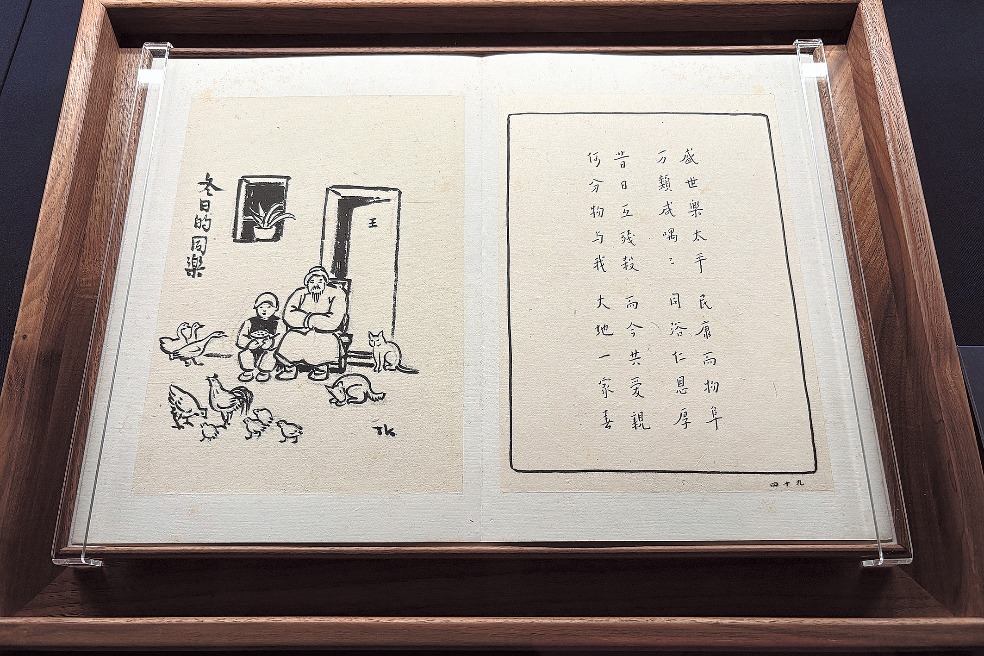 盛世樂太平 民康而物阜
万類咸喁〻 同浴仁恩厚
昔日互殘殺 而今共愛親
何分物与我 大地一家春
四十九
冬日的同樂
王
TK